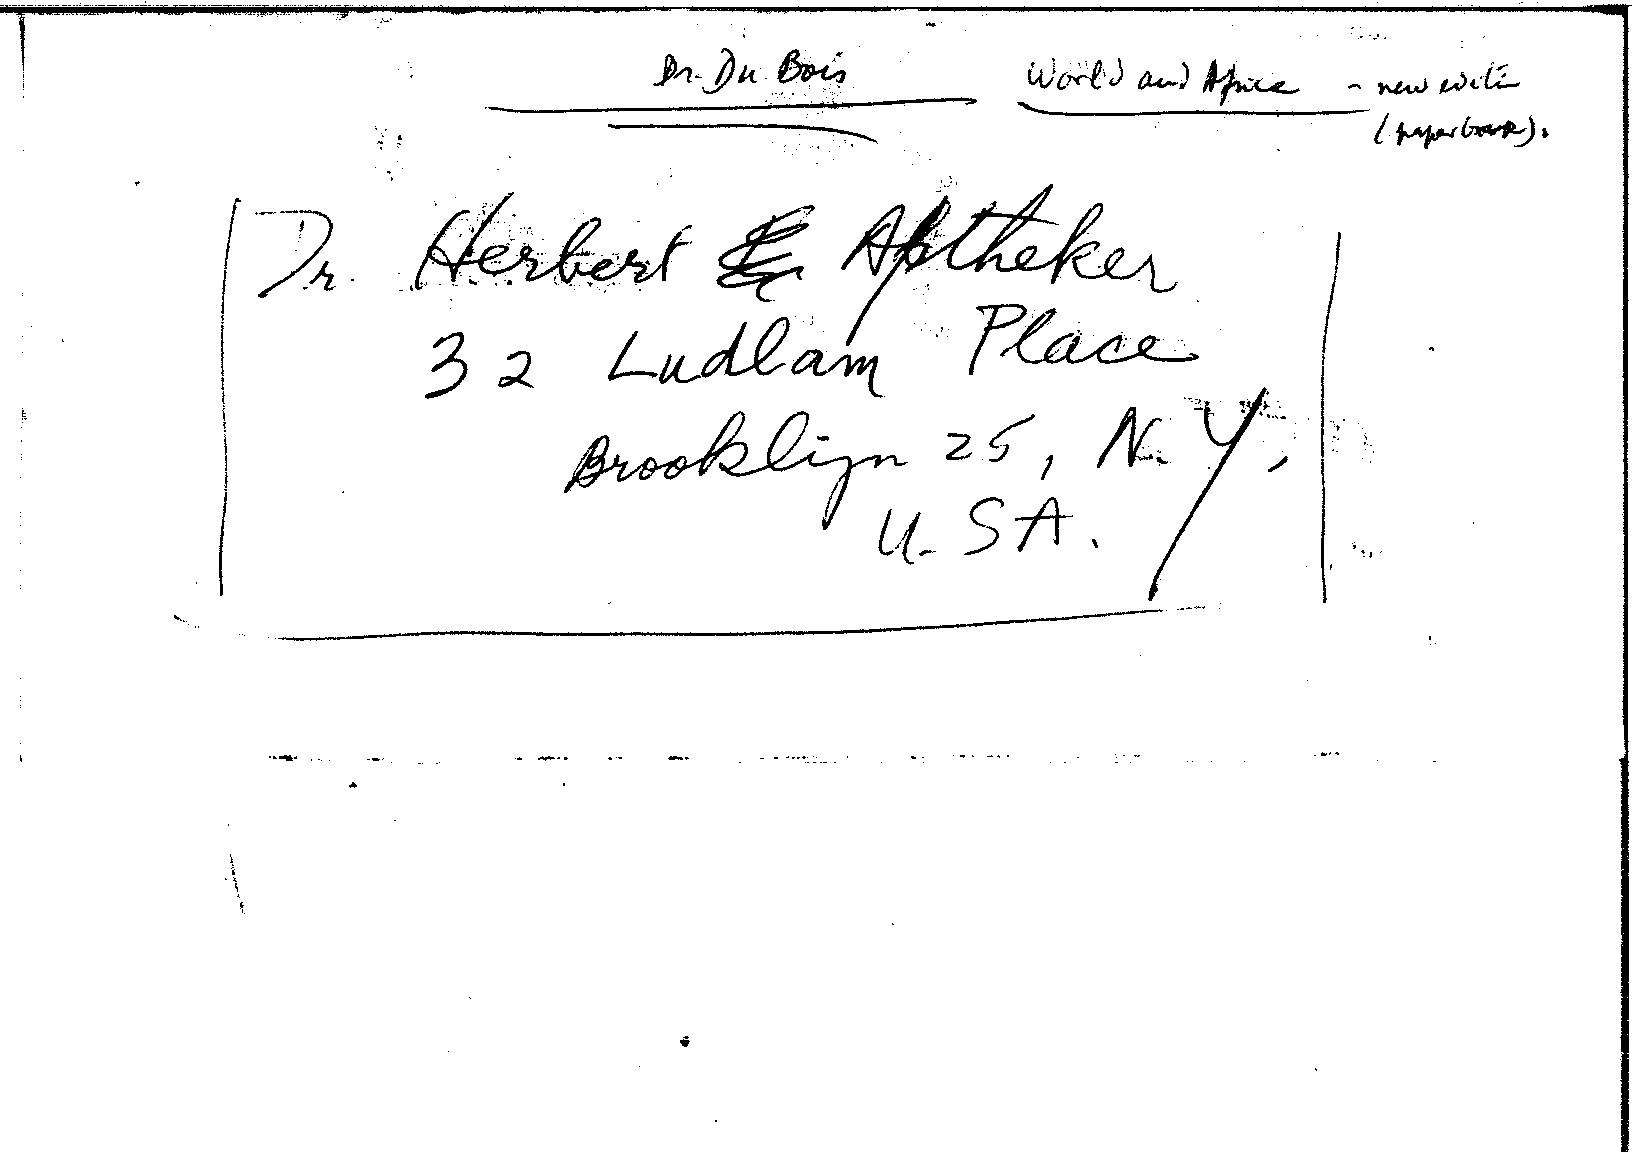 Dr. Du Bois World and Africa - new editi
(paperback).
Dr. Herbert Aptheker
32 Ludlam Place
Brooklyn 25, N.Y,
U.SA.